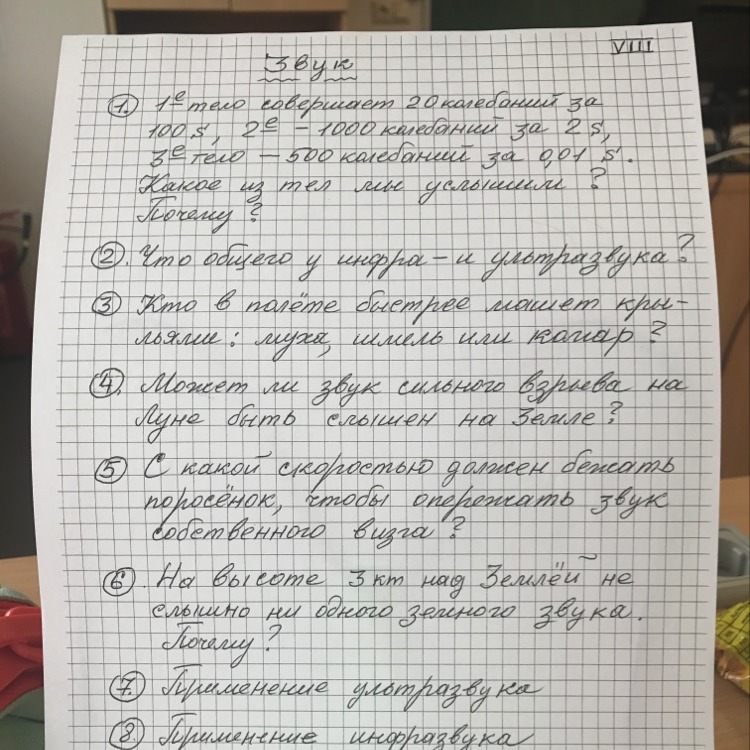 VIII
Звук
1. 1е тело совершает 20 колебаний за
100 s, 2е – 1000 колебаний за 2 s,
3е тело – 500 колебаний за 0,01 s.
Какое из тел мы услышим?
Почему?
2. Что общего у инфра- и ультразвука?
3 Кто в полёте быстрее машет кры-
льями: муха, шмель или комар?
4. Может ли звук сильного взрыва на
Луне быть слышен на Земле?
5 С какой скоростью должен бежать
поросёнок, чтобы опережать звук
собственного визга?
6. На высоте 3 км над Землёй не
слышно ни одного земного звука.
Почему?
7. Применение ультразвука
8. Применение инфразвука